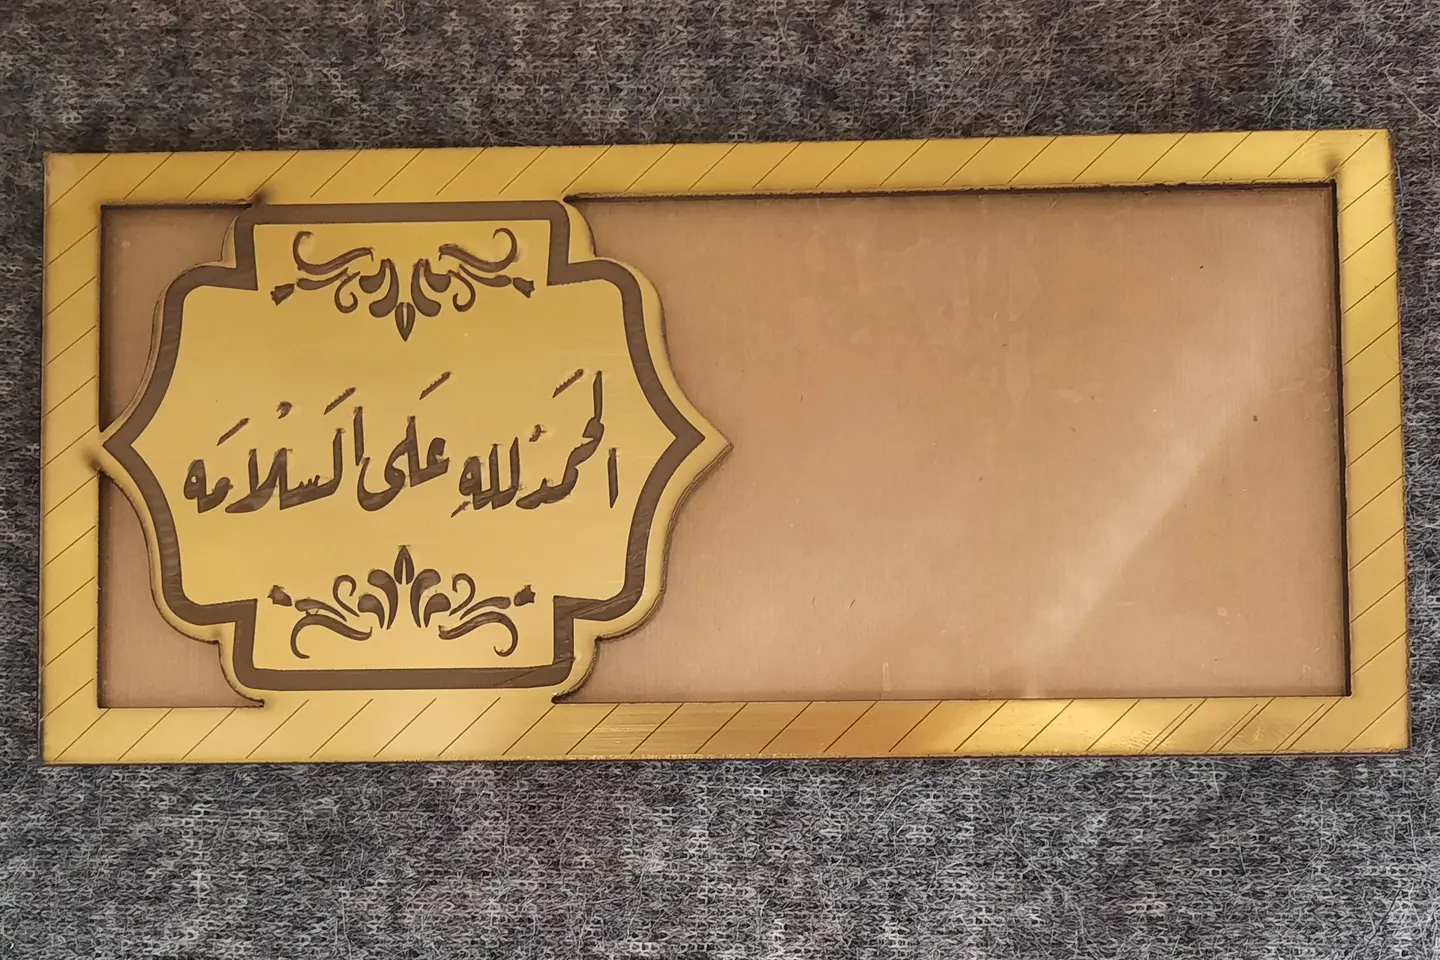 الحَمدُ للهِ عَلى اَلسْلامَه